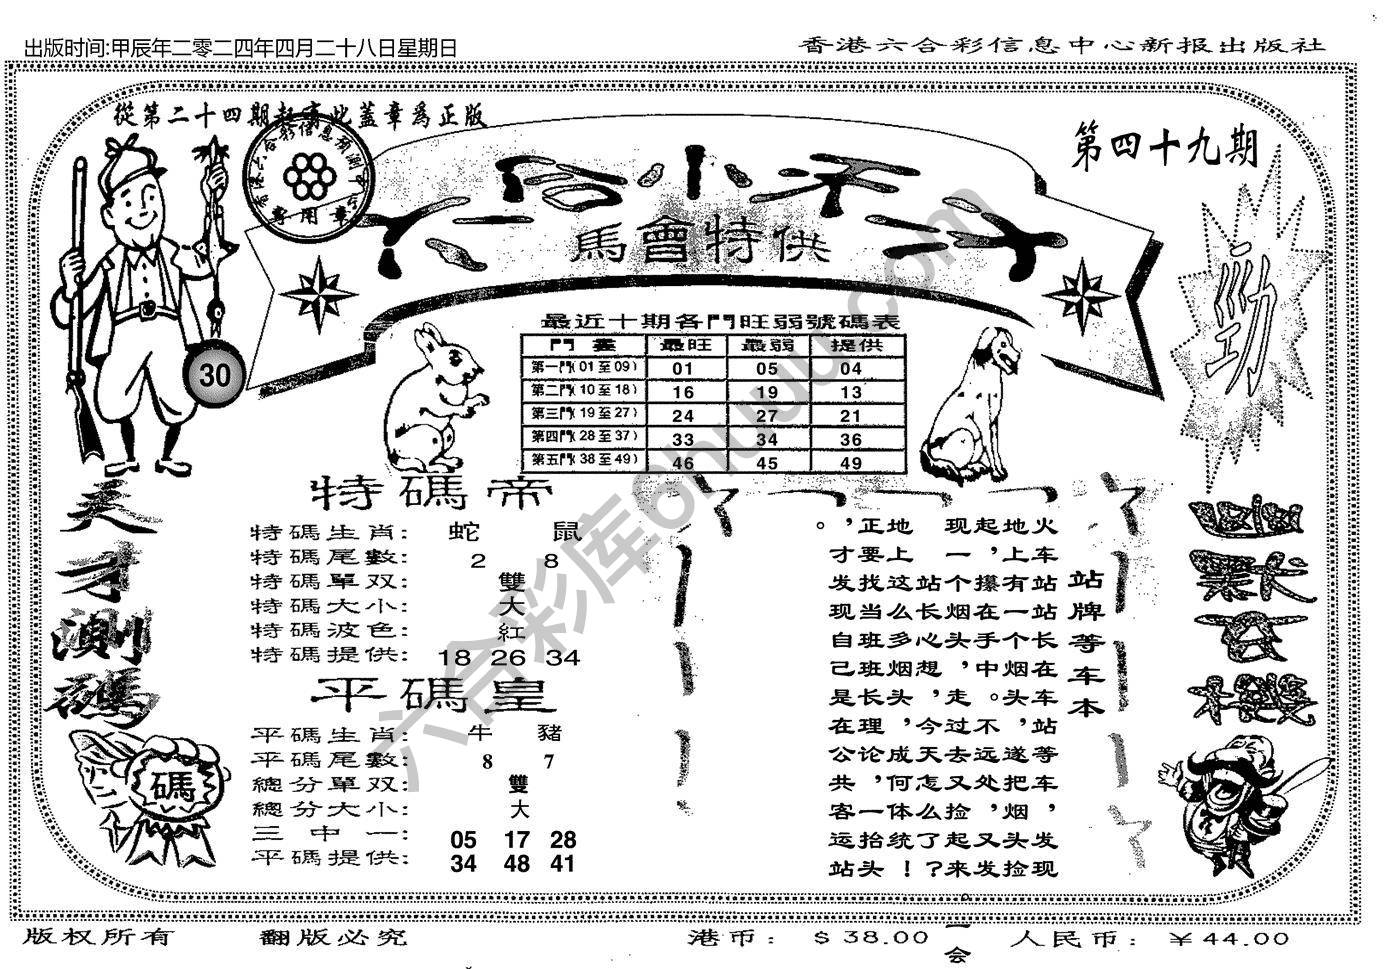 出版时间:甲辰年二零二四年四月二十八日星期日
香港六合彩信息中心新报出版社
從第二十四期起
此蓋章爲正版
專用章
第四十九期
馬會特供
勁
30
最近十期各門旺弱號碼表
門 最旺 最弱 提供
第一門(01至09) 01 05 04
第二門(10至18) 16 19 13
第三門(19至27) 24 27 21
第四門(28至37) 33 34 36
第五門(38至49) 46 45 49
天才測碼
碼
特碼帝
特碼生肖: 蛇 鼠
特碼尾數: 2 8
特碼單双: 雙
特碼大小: 大
特碼波色: 紅
特碼提供: 18 26 34
平碼皇
平碼生肖: 牛 豬
平碼尾數: 8 7
總分單双: 雙
總分大小: 大
三中一: 05 17 28
平碼提供: 34 48 41
站牌等车本
火车站站长在车站等车，发现
地上有一个烟头，遂把烟头捡
起，攥在手中。不远处，又发
现一个烟头，走过去又捡起来。一会
站长心想，今天怎么了?
地上这么多烟头，成何体统！
正要找当班班长理论，一抬头
，才发现自己是在公共客运站
。
六合彩库6huu.com
版权所有
翻版必究
港币: $38.00
人民币: ￥44.00